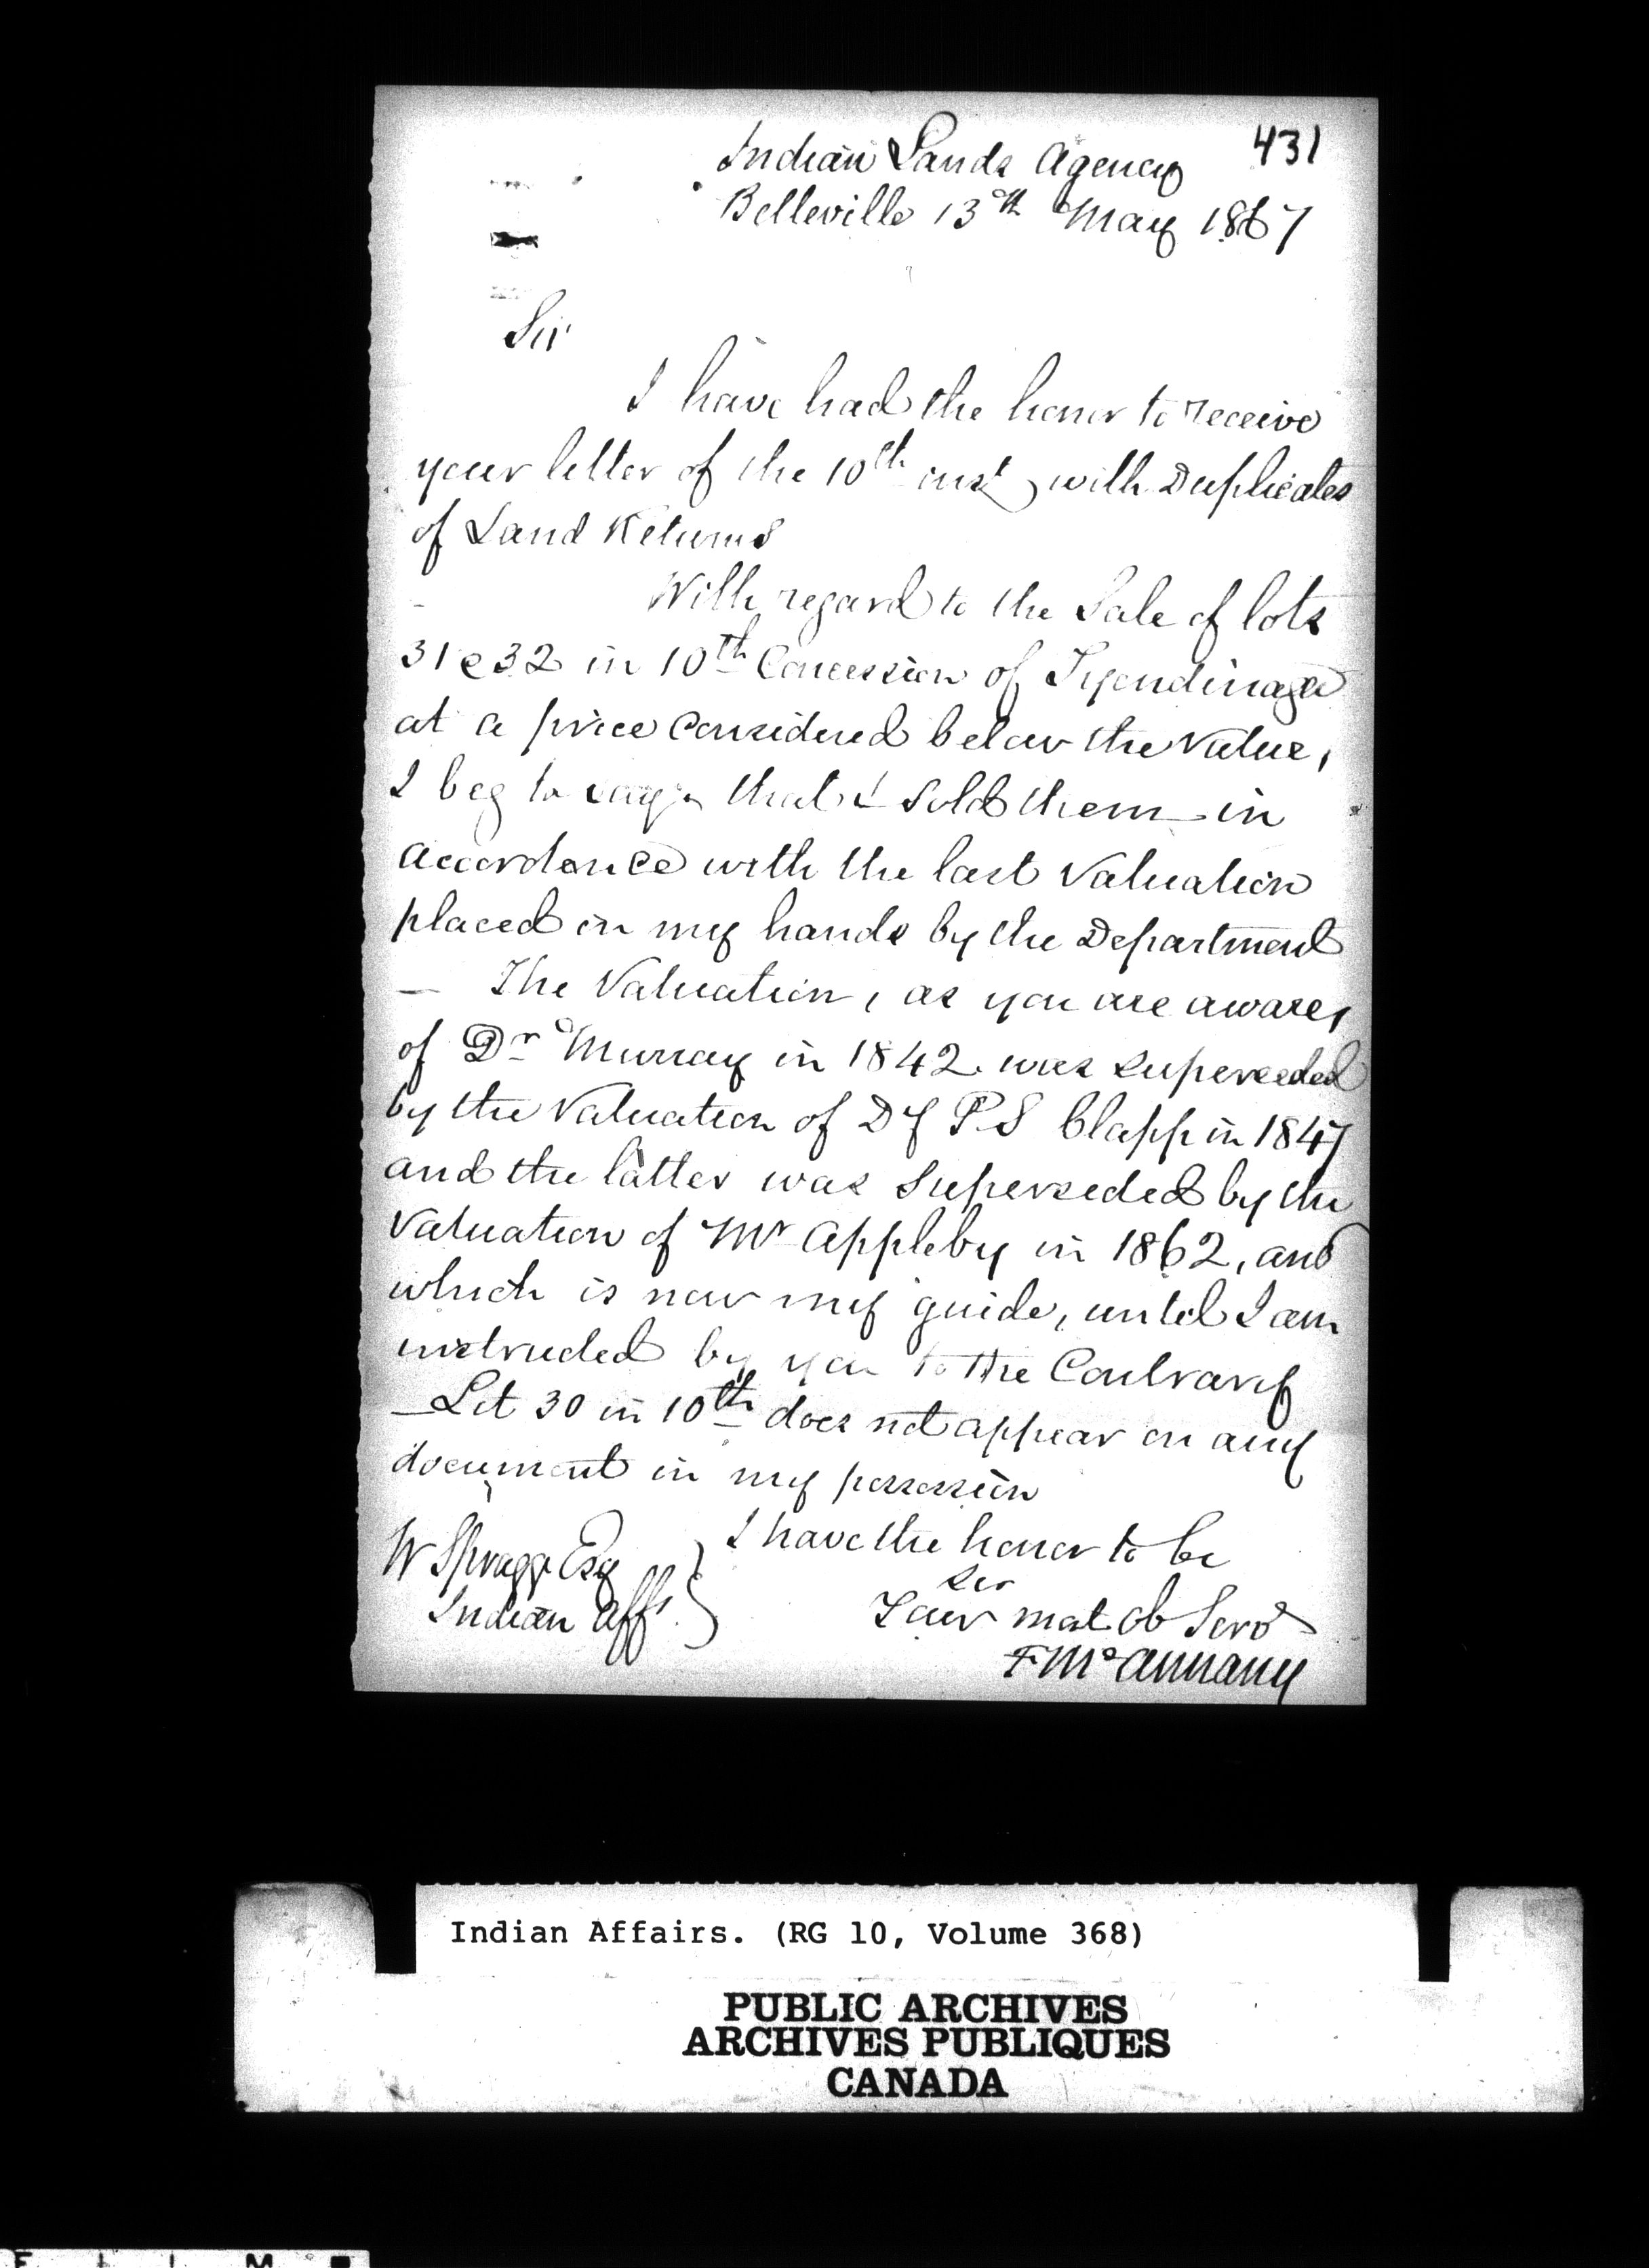 431
Indian Lands Agency
Belleville 13th May 1867
Sir
I have had the honor to receive
your letter of the 10th inst, with Duplicates
of Land Returns
With regard to the Sale of lots
31 & 32 in 10th Concession of Tyendinaga
at a price considered below the value,
I beg to say that I sold them in
accordance with the last Valuation
placed in my hands by the Department
— The Valuation, as you are aware,
of Dr Murray in 1842 was superseeded
by the Valuation of Dy P.S Clapp in 1847
and the latter was superseded by the
Valuation of Mr Appleby in 1862, and
which is now my guide, until I am
instructed by you to the Contrary
— Lot 30 in 10th does not appear on any
document in my possession
I have the honor to be
Sir
Your most ob Servt
F McAnnany
W Spragge Esq
Indian Affs.
Indian Affairs. (RG 10, Volume 368)
PUBLIC ARCHIVES
ARCHIVES PUBLIQUES
CANADA